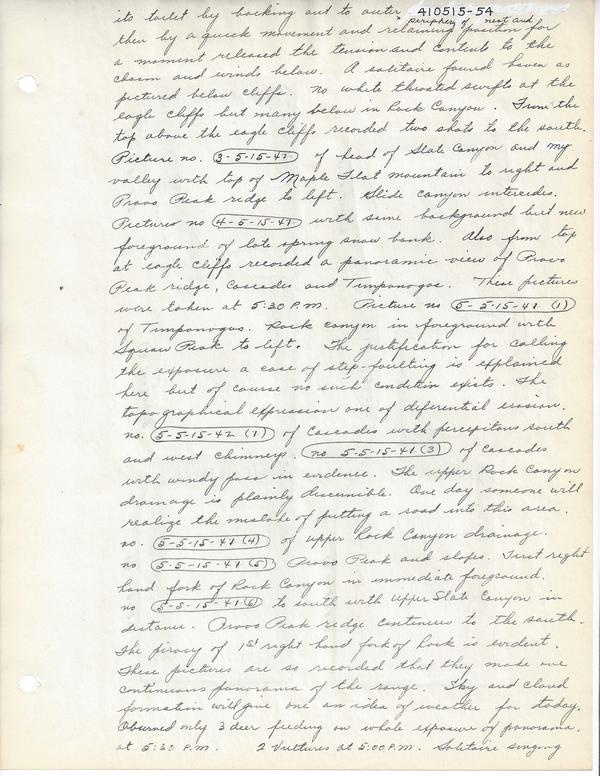 410515-54
its toilet by backing out to outer periphery of nest and
then by a quick movement and retaining position for
a moment released the tension and contents to the
chasm and winds below. A solitaire found haven as
pictured below cliffs. No white throated swifts at the
eagle cliffs but many below in Rock Canyon. From the
top above the eagle cliffs recorded two shots to the south.
Picture no. 3-5-15-41 of head of Slate Canyon and my
valley with top of Maple Flat mountain to right and
Provo Peak ridge to left. Slide canyon intercedes.
Pictures no 4-5-15-41 with same background but new
foreground of late spring snow bank. Also from top
at eagle cliffs recorded a panoramic view of Provo
Peak ridge, Cascades and Timponogos. These pictures
were taken at 5:30 P.M. Picture no 5-5-15-41 (1)
of Timponogos. Rock canyon in foreground with
Squaw Peak to left. The justification for calling
the exposure a case of step-faulting is explained
here but of course no such condition exists. The
topographical expression one of deferential erosion.
no. 5-5-15-42 (1) of Cascades with percepitous south
and west chimneys. no 5-5-15-41 (3) of Cascades
with windy pass in evidence. The upper Rock Canyon
drainage is plainly discernible. One day someone will
realize the mistake of putting a road into this area.
no. 5-5-15-41 (4) of upper Rock Canyon drainage.
no 5-5-15-41 (5) Provo Peak and slopes. First right
hand fork of Rock Canyon in immediate foreground.
no 5-5-15-41 (6) to south with upper Slate Canyon in
distance. Provo Peak ridge continues to the south.
The piracy of 1st right hand fork of Rock is evident.
These pictures are so recorded that they make one
continuous panorama of the range. Sky and cloud
formation will give one an idea of weather for today.
Observed only 3 deer feeding on whole exposure of panorama.
at 5:30 P.M. 2 Vultures at 5:00 P.M. Solitaire singing